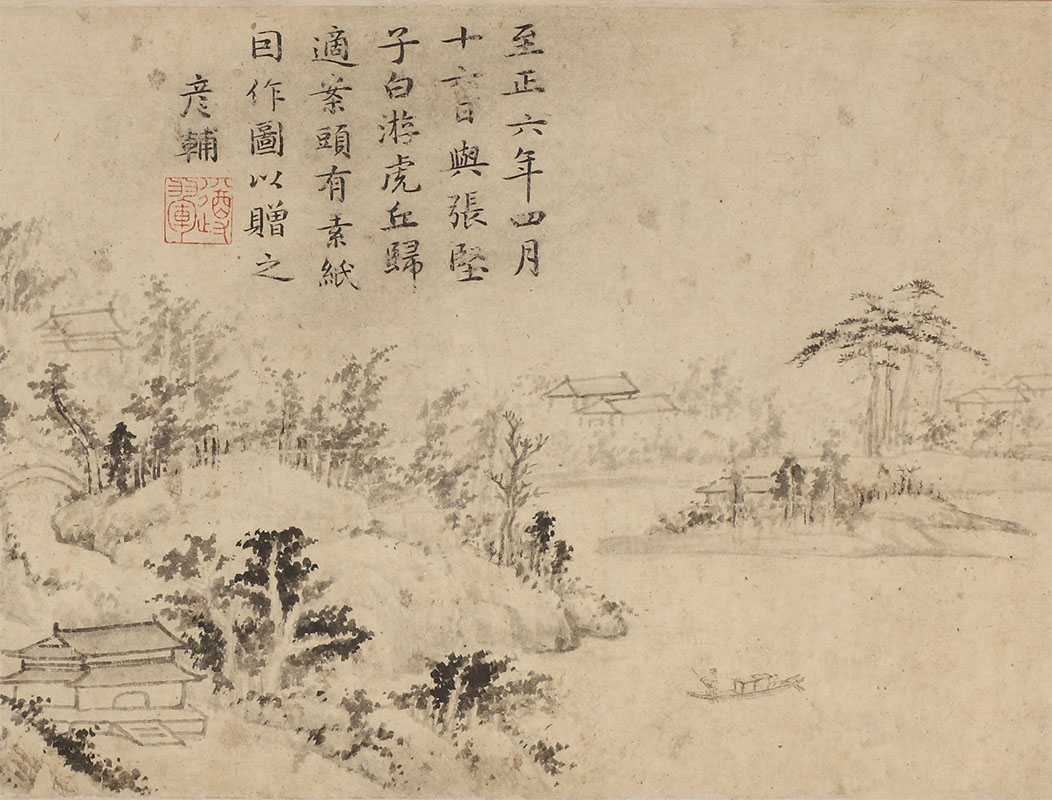 至正六年四月
十六日與張堅
子白游虎丘歸
適案頭有素紙
因作圖以贈之
彦輔